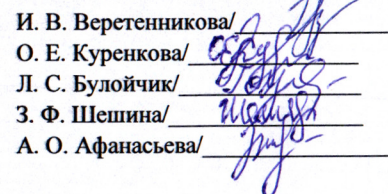 И. В. Веретенникова/
О. Е. Куренкова/
Л. С. Булойчик/
З. Ф. Шешина/
А. О. Афанасьева/